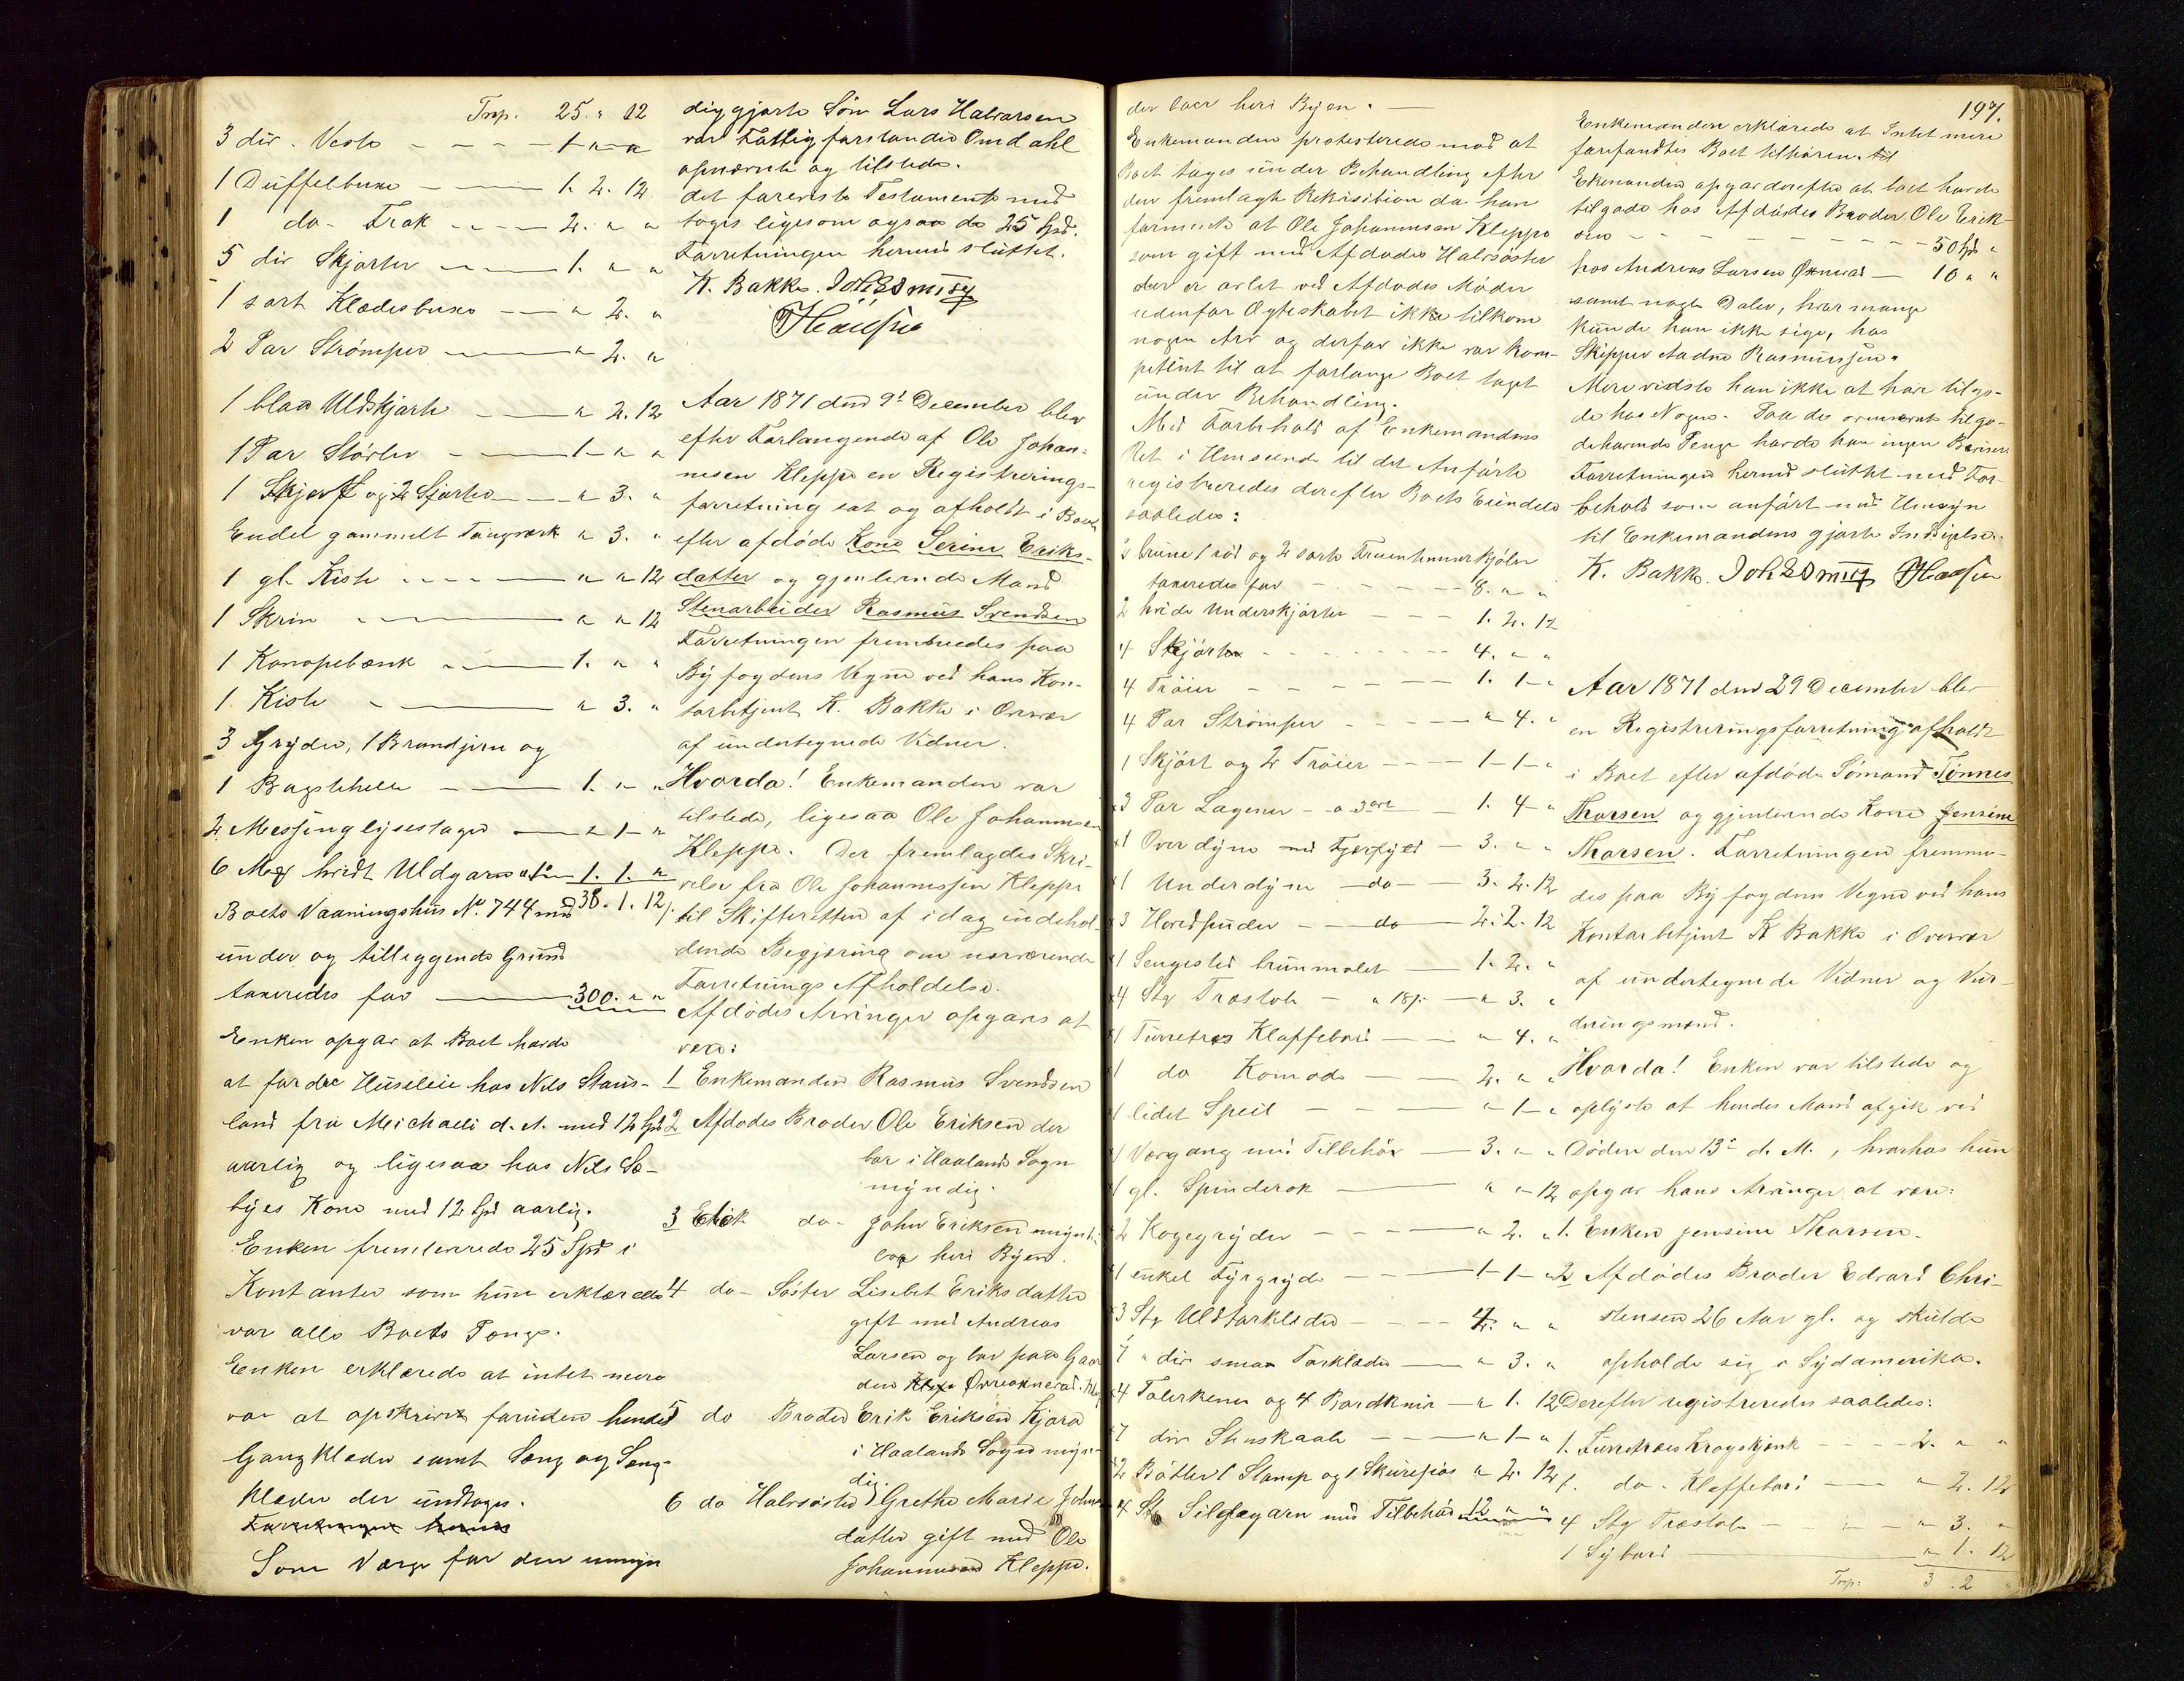 Trsp. 25. " 12
3 dir. Veste - - - - 1 " "
1 Duffelbuxe - - - 1. 2. 12
1 do. Frak - - - - 2. " "
5 dir Skjorter - - - 1. " "
1 sort Klædesbuxe - - " 2. "
2 Par Strømper - - - " 2. "
1 blaa Uldskjorte - - " 2. 12
1 Par Støvler - - - 1 " "
1 Skjerf og 2 - - " 3. "
Endel gammelt Tougværk " 3. "
1 gl. Kiste - - - - " " 12
1 Skrin - - - - " " 12
1 Kanapebænk - - - 1. " "
1 Kiste - - - - " 3. "
3 Gryder, 1 Brandjern og
1 Bagstehelle - - - 1. " "
2 Messinglysestager - - " 1 "
6 Mrk hvidt Uldgarn 1. 1. "
38. 1. 12
Boets Vaaningshus No. 744 med
under og tilliggende Grund
taxeredes for - - 300. " "
Enken opgav at Boet havde
at fordre Husleie hos Nils Staus-
land fra Michaeli d. A. med 12 Spd
aarlig og ligesaa hos Nils Sø-
byes Kone med 12 Spd aarlig.
Enken fremleverede 25 Spd i
Kontanter som hun erklærede
var alle Boets Penge.
Enken erklærede at intet mere
var at opskrive foruden hendes
Gangklæder samt Seng og Seng-
klæder der undtoges.
Forretningen hermed
Som Værge for den umyn
diggjorte Søn Lars Halvorsen
var Fattigforstander Omdahl
opnævnt og tilstede.
det foreviste Testamente med
toges ligesom ogsaa de 25 Spd.
Forretningen hermed sluttet.
K. Bakke.
Aar 1871 den 9de December blev
efter Forlangende af Ole Johan-
nesen Kleppe en Registrerings-
forretning sat og afholdt i Boet
efter afdøde Kone Serine Eriks-
datter og gjenlevende Mand
Stenarbeider Rasmus Svendsen
Forretningen fremmedes paa
Byfogdens Vegne ved hans Kon-
torbetjent K. Bakke i Overvær
af undertegnede Vidner.
Hvorda! Enkemanden var
tilstede, ligesaa Ole Johannesen
Kleppe. Der fremlagdes Skri-
velse fra Ole Johannessen Kleppe
til Skifteretten af idag indehol-
dende Begjæring om nærværende
Forretnings Afholdelse.
Afdødes Arvinger opgaves at
være:
1 Enkemanden Rasmus Svendsen
2 Afdødes Broder Ole Eriksen der
bor i Haalands Sogn
myndig.
3 do. John Eriksen myndi
bor heri Byen.
4 do - Søster Lisebet Eriksdatter
gift med Andreas
Larsen og bor paa Gaar
den
5 do Broder Erik Eriksen Kjora
i Haalands Sogn myn-
dig
6 do Halvsøster Grethe Marie Johan
datter gift med Ole
Johannesen Kleppe.
197.
der boer heri Byen. —
Enkemanden protesterede mod at
Boet toges under Behandling efter
den fremlagte Rekvisition da han
formente at Ole Johannesen Kleppe
som gift med Afdødes Halvsøster
der er avlet ved Afdødes Moder
udenfor Ægteskabet ikke tilkom
nogen Arv og derfor ikke var kom-
petent til at forlange Boet taget
under Behandling.
Med Forbehold af Enkemandens
Ret i Henseende til det Anførte
registreredes derefter Boets Eiendele
saaledes:
brune 1 rød og 2 sorte Fruentimmerkjoler
taxeredes for - - - 8. " "
2 hvide Underskjorter - - - 1. 2. 12
4 Skjørter - - - - 4. " "
4 Trøier - - - - 1. 1 "
4 Par Strømper - - - " 4. "
1 Skjørt og 2 Trøier - - - 1 1 "
3 Par Lagener - a 3 ort 1. 4 "
1 Overdyne med Fjærfyld - 3. " "
1 Underdyne - do - 3. 2. 12
3 Hovedpuder - - do 2. 2. 12
1 Sengested brunmalet - 1. 2. "
4 Stk Træstole - a 18 s. - " 3. "
1 Furretræs Klaffebord - " 4. "
1 do Komode - - 2. " "
1 lidet Speil - - - " 1 "
1 Vævgang med Tilbehør - 3. " "
1 gl. Spinderok - " " 12
2 Kogegryder - - - " 2. "
1 enkel Fyrgryde - - 1 1 "
3 Stk Uldtørklæder - - - 4. " "
7 " dir smaa Tørklæder - " 3. "
4 Talerkener og 4 Bordknive - " 1. 12
7 dir Stenskaale - - - " 1 "
2 Bøtter 1 Stamp og 1 " 2. 12
4 Stk Sildegarn med Tilbehør 12 " "
Enkemanden erklærede at Intet mere
forefandtes Boet tilhøren. til
Ekemanden opgav derefter at boet havde
tilgode hos Afdødes Broder Ole Erik-
sen - - - - 50 Spd "
hos Andreas Larsen - 10 " "
samt nogle Daler, hvor mange
kunde han ikke sige, hos
Skipper Aadne Rasmussen.
Mere vidste han ikke at have tilgo-
de hos Nogen. Paa de ommeldte tilgo-
dehavende Penge havde han ingen Beviser
Forretningen hermed sluttet med For-
behold som anført med Hensyn
til Enkemandens gjorte Indsigelse.
K. Bakke.
Aar 1871 den 29 December blev
en Registreringsforretning afholdt
i Boet efter afdøde Sømand Tønnes
Thorsen og gjenlevende Kone Jensine
Thorsen. Forretningen fremme-
des paa Byfogdens Vegne ved hans
Kontorbetjent K Bakke i Overvær
af undertegnede Vidner og Vur-
deringsmænd.
Hvorda! Enken var tilstede og
oplyste at hendes Mand afgik ved
Døden den 13de d. M., hvorhos hun
opgav hans Arvinger at være:
1. Enken Jensine Thorsen.
2 Afdødes Broder Edvard Chri-
stensen 26 Aar gl. og skulde
opholde sig i Sydamerika.
Derefter registreredes saaledes:
1. Furretræes Kragskjænk - - - 2. " "
1. do. Klaffebord - - " 2. 12
4 Stk Træstole - - - " 3. "
1 Sybord - - " 1. 12
Trsp: 3. 2 "